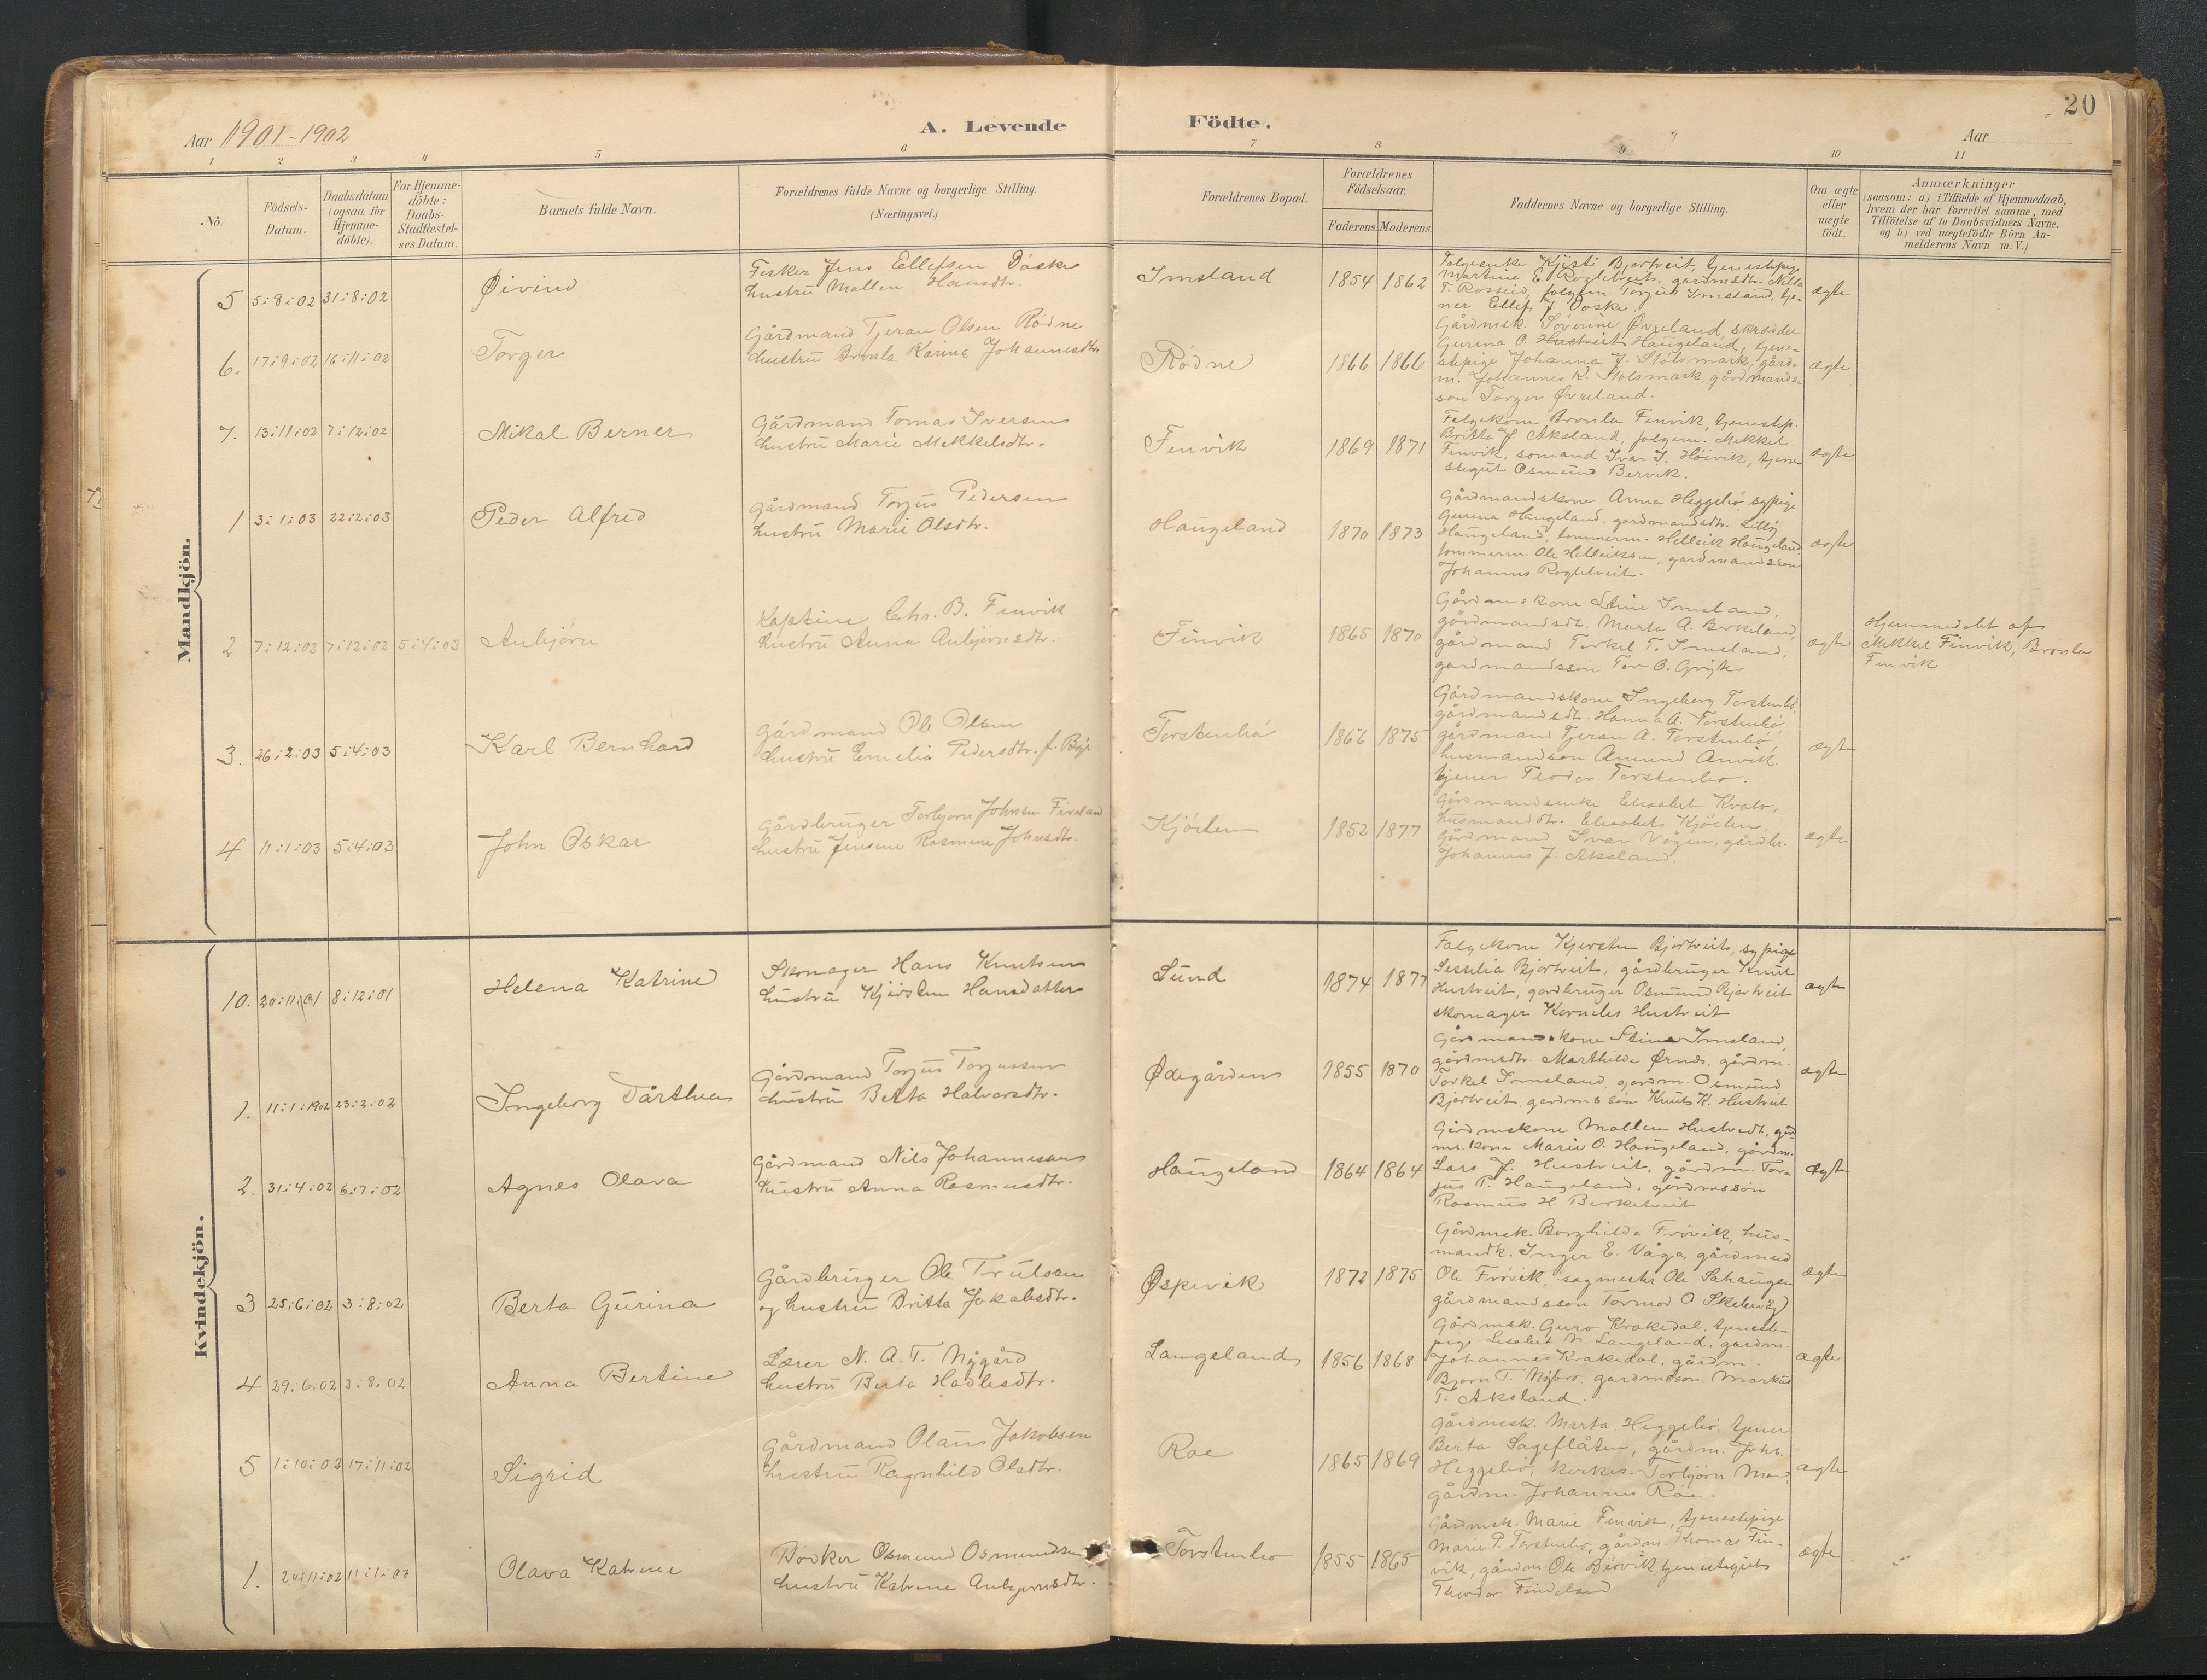 20
Aar 1901-1902
A. Levende Födte.
Aar
1 2 3 4 5 6 7 8 9 10 11
No.
Födsels-
Datum.
Daabsdatum
(ogsaa for
Hjemme-
döbte).
For Hjemme-
döbte:
Daabs-
Stadfæstel-
ses Datum.
Barnets fulde Navn.
Forældrenes fulde Navne og borgerlige Stilling.
(Næringsvei.)
Forældrenes Bopæl.
Forældrenes
Födselsaar.
Faderens. Moderens.
Faddernes Navne og borgerlige Stilling.
Om ægte
eller
uægte
födt.
Anmærkninger
(saasom: a) i Tilfælde af Hjemmedaab,
hvem der har forrettet samme, med
Tilföielse af to Daabsvidners Navne,
og b) ved uægtefödte Börn An-
melderens Navn m. V.)
Mandkjön.
5 5:8:02 31:8:02 Øivind
Fisker Jens Ellefsen Døske
hustru Mallene Hansdtr.
Imsland 1854 1862
Martine E. Rogletveit, gårdmsdtr.
T. Rosseid, folgem. Torjus Imsland, tje-
ner Ellef J. Døske.
ægte
6. 17:9:02 16:11:02 Torger
Gårdmand Tjeran Olsen Rødne
hustru Karina Johannesdtr.
Rødne 1866 1866
Gårdmsk. Søverine Øvreland, skrædder
Gurina O. Haugeland, tjene-
stepige Johanna J. Stølsmark, gård-
m. Johannes K. Stølsmark, gårdmands-
søn Torger Øvreland.
ægte
7. 13:11:02 7:12:02 Mikal Berner
Gårdmand Tomas Iversen
hustru Marie Mekkelsdtr.
Fenvik 1869 1871
Folgekone Bronla Fenvik, tjenestep.
Britta J Aksland, folgem. Mekkel
Fenvik, sømand Ivar I. Høivik, tjene-
stegut Osmund Bervik.
ægte
1 3:1:03 22:2:03 Peder Alfred
Gårdmand Torjus Pedersen
hustru Marie Olsdtr.
Haugeland 1870 1873
Gårdmandskone Anna Heggelid, sypige
Gurina Haugeland, gårdmandsdtr. Lilly
Haugeland, tømmerm. Helleik Haugeland,
tømmerm. Ole Helleiksen, gårdmandssøn
Johannes Rogletveit.
ægte
2 7:12:02 7:12:02 5:4:03 Anbjørn
Kaptein Chr. B. Fenvik
hustru Anna Anbjørnsdtr.
Finvik 1865 1870
Gårdmskone Stine Imsland,
gårdmandsdt. Marta A. Berkeland,
gårdmand Terkel T. Imsland,
gårdmandssøn Tor O.
ægte
Hjemmedøbt af
Mekkel Finvik, Bronla
Finvik
3. 26:2:03 5:4:03 Karl Bernhard
Gårdmand Ole Olsen
hustru Emelia Pedersdtr.
Torstenbø 1867 1875
Gårdmandskone Ingeborg Torstenbø,
gårdmandsdtr. Hanna A. Torstenbø,
gårdmand Tjeran A. Torstenbø,
husmandssøn Amund Anvik,
tjener Teodor Torstenbø.
ægte
4 11:1:03 5:4:03 John Oskar
Gårdbruger Torbjorn Johnsen
hustru Jensine Rasmine Johnsdtr.
Kjøelen 1852 1877
Gårdmandsenke Elisabet Kvalø,
husmandsdtr. Elisabet Kjøelen,
gårdmand Iver Vågen, gårdbr.
Johannes J. Aksland.
ægte
Kvindekjön.
10. 20:11:01 8:12:01 Helena Katrine
Skomager Hans Knutsen
hustru Kjirsten Hansdatter
Sund 1874 1877
Folgekone Kjersten Bjortveit, sypige
Sesselia Bjortveit, gårdbruger Knut
Hustveit, gardbruger Osmund Bjortveit
skomager Kornelis Hustveit
ægte
1. 11:1:1902 23:2:02 Ingeborg Dårthea
Gårdmand Torjus Torjussen
hustru Berta Halvorsdtr.
Ødegården 1855 1870
Gårdmandskone Stine Imsland,
gårdmsdtr. Marthilde Ørnes, gårdm.
Torkel Imsland, gardm. Osmund
Bjortveit, gardmssøn Knut K. Hustveit
ægte
2. 31:4:02 6:7:02 Agnes Olava
Gårdmand Nils Johannesen
hustru Anna Rasmusdtr.
Haugeland 1864 1864
Gårdmskone Mallene Hustvedt, gård-
ms.kone Marie O. Haugeland, gårdm.
Lars J. Hustveit, gårdm. Tor-
jus P. Haugeland, gårdmssøn
Rasmus H Berketveit
ægte
3 25:6:02 3:8:02 Berta Gurina
Gårdbruger Ole Trulssen
og hustru Britta Jakobsdtr.
Øspevik 1872 1875
Gårdmsk. Borghilde Frøvik, hus-
mandk. Inger E. Våga, gårdmand
Ole Frøvik, sagmester Ole Sahaugen
gårdmandssøn Tormod O Skeleveg
ægte
4 29:6:02 3:8:02 Anna Bertine
Lærer N. A. T. Nygård
hustru Berta Hadlesdtr.
Langeland 1856 1868
Gårdmsk. Guro Krakedal, tjeneste-
pige Lisabet N. Langeland, gardm.
Johannes Krakedal, gårdm.
Bjorn T. Nybro, gardmssøn Markus
T. Aksland.
ægte
5 1:10:02 17:11:02 Sigrid
Gårdmand Olaus Jakobsen
hustru Ragnhild Olsdtr.
Roe 1865 1869
Gårdmsk. Marta Heggelid, tjener
Berta Sageflåten, gårdm. Johs.
Heggelid, kirkes. Torbjørn Moe,
gårdm. Johannes Røe.
ægte
1. 20:11:02 11:1:03 Olava Katrine
Bødker Osmund Osmundsen
hustru Katrine Anbjørnsdtr.
Torstenbø 1855 1865
Gårdmsk. Marie Finvik, tjenestepige
Marie P. Torstenbø, gårdm. Thomas Fin-
vik, gårdm Ole Bervik, tjenestegut
Theodor
ægte